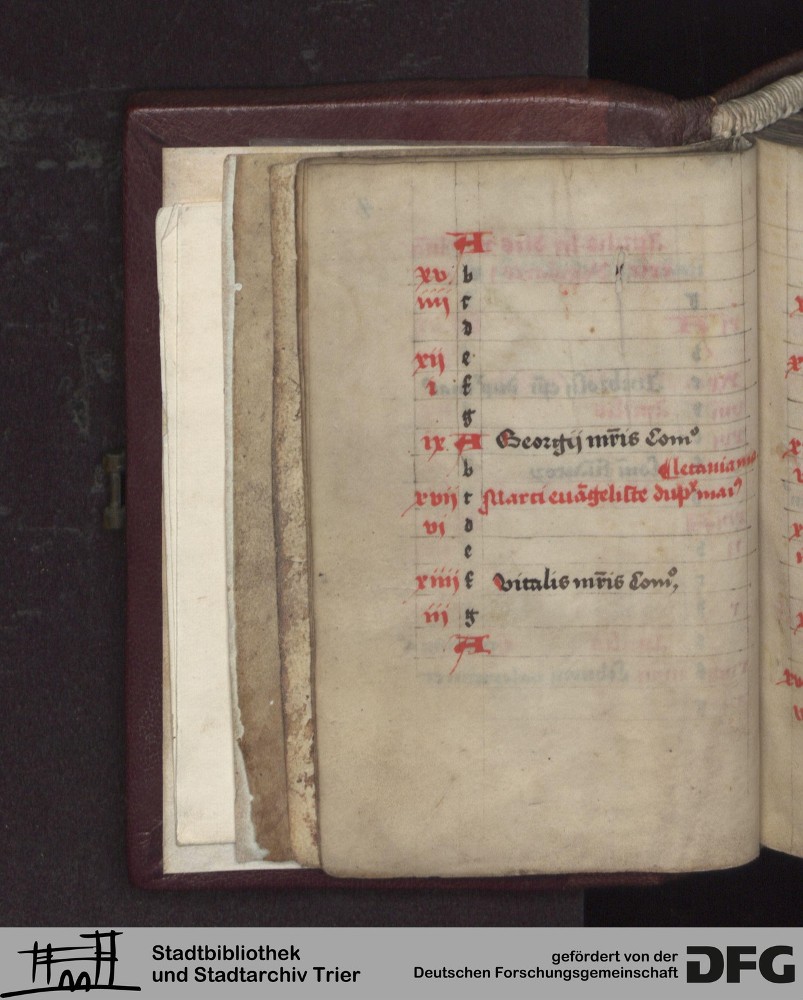 A
xv b
iiii c
d
xii e
i f
g
ix A Georgij mr̄is Com⁹
b Letania
xvii c Marci euāgeliste dup͛ mai⁹
vi d
e
xiiii f Vitalis mr̄is Com⁹
iii g
A
Stadtbibliothek
und Stadtarchiv Trier
gefördert von der
Deutschen Forschungsgemeinschaft
DFG